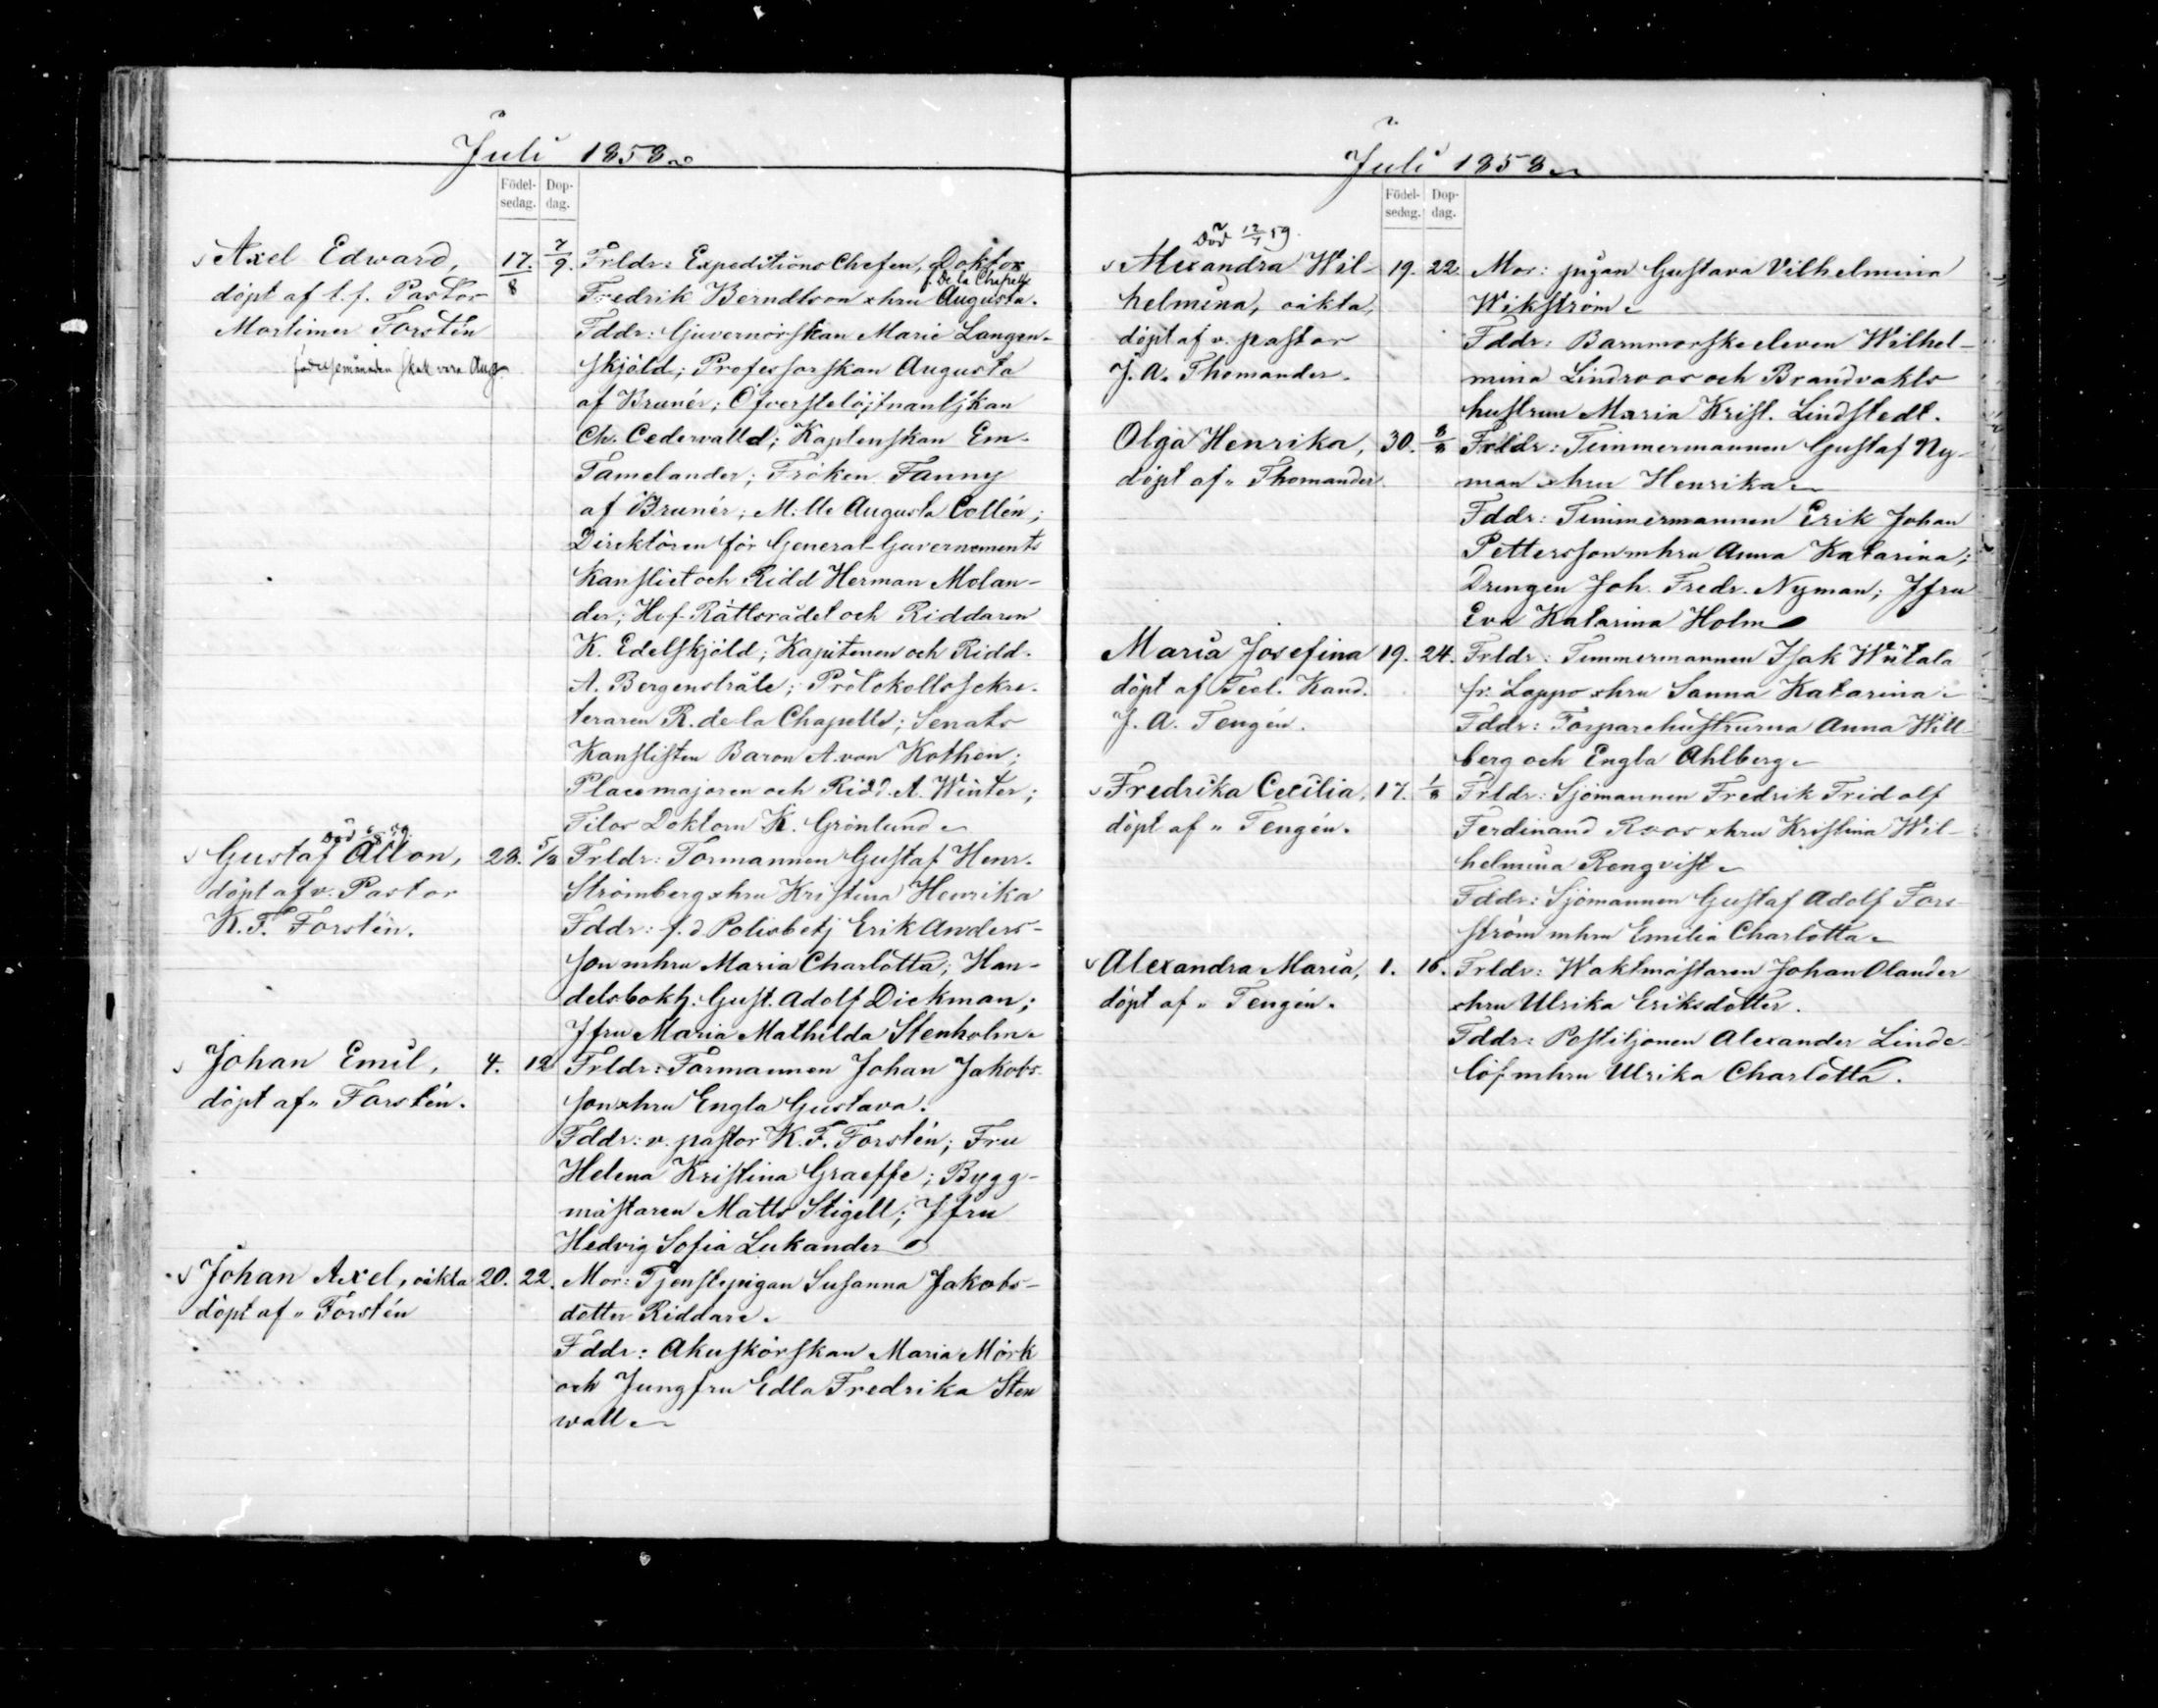 Juli 1858
Födel-
sedag.
Dop-
dag.
Axel Edward,
döpt af t. f. Pastor
Mortimer Forstén
födelsemånaden skall vara Aug.
17.
8
7
9.
Frldr: Expeditions Chefen, Doktor
f. De la Chapelle
Fredrik Berndtson o hru Augusta.
Fddr: Guvernörskan Marie Langen-
skjöld; Professorskan Augusta
af Brunér; Öfverstelöjtnantskan
Ch. Cedervalld; Kaptenskan Em.
Tamelander; Fröken Fanny
af Brunér; M:lle Augusta Collén;
Direktören för General-Guvernements
Kansliet och Ridd Herman Molan-
der; Hof-Rättsrådet och Riddaren
K. Edelskjöld; Kapitenen och Ridd.
A. Bergenstråle; Protokollssekre-
teraren R. de la Chapelle; Senats
Kanslisten Baron A. von Kothen;
Placemajoren och Ridd. A. Winter;
Filos Doktorn K. Grönlund
Död 6/8 59.
Gustaf Allon,
döpt af v. Pastor
K. F. Forstén.
28. 5/8
Frldr: Formannen Gustaf Henr.
Strömberg o hru Kristina Henrika
Fddr: f. d Polisbetj Erik Anders-
son m hru Maria Charlotta; Han-
delsbokh. Gust. Adolf Dickman;
Jfru Maria Mathilda Stenholm.
Johan Emil,
döpt af " Forstén.
4. 12
Frldr: Formannen Johan Jakobs-
son o hru Engla Gustava.
Fddr: v. pastor K. F. Forstén; Fru
Helena Kristina Graeffe; Bygg-
mästaren Matts Stigell; Jfru
Hedvig Sofia Lukander
Johan Axel, oäkta
döpt af " Forstén
20. 22.
Mor: Tjenstepigan Susanna Jakobs-
dotter Riddare.
Fddr: Akuskörskan Maria Mörk
och Jungfru Edla Fredrika Sten
wall
Juli 1858
Födel-
sedag.
Dop-
dag.
Död 12/7 59.
Alexandra Wil-
helmina, oäkta,
döpt af v. pastor
J. A. Thomander.
19. 22.
Mor: pigan Gustava Vilhelmina
Wikström
Fddr: Barnmorskeeleven Wilhel-
mina Lindroos och Brandvakts
hustrun Maria Krist. Lindstedt.
Olga Henrika,
döpt af " Thomander.
30. 8/8
Frldr: Timmermannen Gustaf Ny-
man o hru Henrika
Fddr: Timmermannen Erik Johan
Pettersson m hru Anna Katarina;
Drengen Joh. Fredr. Nyman; Jfru
Eva Katarina Holm
Maria Josefina
döpt af Teol. Kand.
J. A. Tengén.
19. 24.
Frldr: Timmermannen Isak Wiitala
fr. Lappo o hru Sanna Katarina
Fddr: Torparehustrurna Anna Will-
berg och Engla Ahlberg
Fredrika Cecilia,
döpt af " Tengén.
17. 1/8
Frldr: Sjömannen Fredrik Fridolf
Ferdinand Roos o hru Kristina Wil-
helmina Rengvist
Fddr: Sjömannen Gustaf Adolf Fors-
ström m hru Emilia Charlotta
Alexandra Maria,
döpt af " Tengén.
1. 16.
Frldr: Waktmästaren Johan Olander
o hru Ulrika Eriksdotter.
Fddr: Postiljonen Alexander Linde-
löf m hru Ulrika Charlotta.